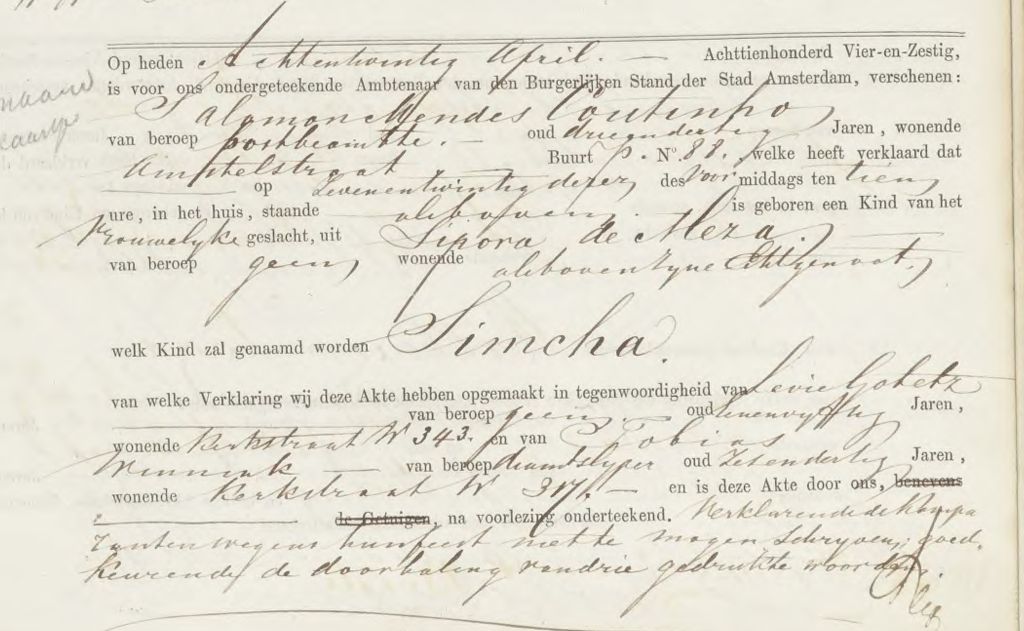 Op heden Achtentwintig April. — Achttienhonderd Vier-en-Zestig,
is voor ons ondergeteekende Ambtenaar van den Burgerlijken Stand der Stad Amsterdam, verschenen:
Salomon Mendes Coutinho
van beroep postbeambte. — oud drieendertig Jaren, wonende
Amstelstraat Buurt P. No. 88., welke heeft verklaard dat
op Zevenentwintig dezer, des Voormiddags ten tien
ure, in het huis, staande alsboven. is geboren een Kind van het
Vrouwelyke geslacht, uit Sipora de Meza.
van beroep geen, wonende alsboven zyne Echtgenoot,
welk Kind zal genaamd worden Simcha.
van welke Verklaring wij deze Akte hebben opgemaakt in tegenwoordigheid van Levie Gobetz
van beroep geen. — oud eenenvyftig Jaren,
wonende Kerkstraat No 343. en van Tobias
Winnink — van beroep diamantslyper oud Zesendertig Jaren,
wonende Kerkstraat No 317. — en is deze Akte door ons, benevens
de Getuigen, na voorlezing onderteekend. Verklarende de Kompa
ranten wegens hun feest niet te mogen Schryven; goed-
keurende de doorhaling van drie gedrukte woorden.